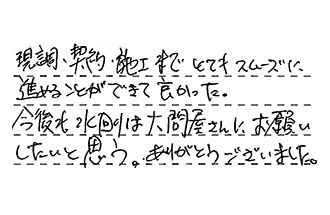 現調、契約、施工までとてもスムーズに
進めることができて良かった。
今後も水回りは大問屋さんにお願い
したいと思う。ありがとうございました。